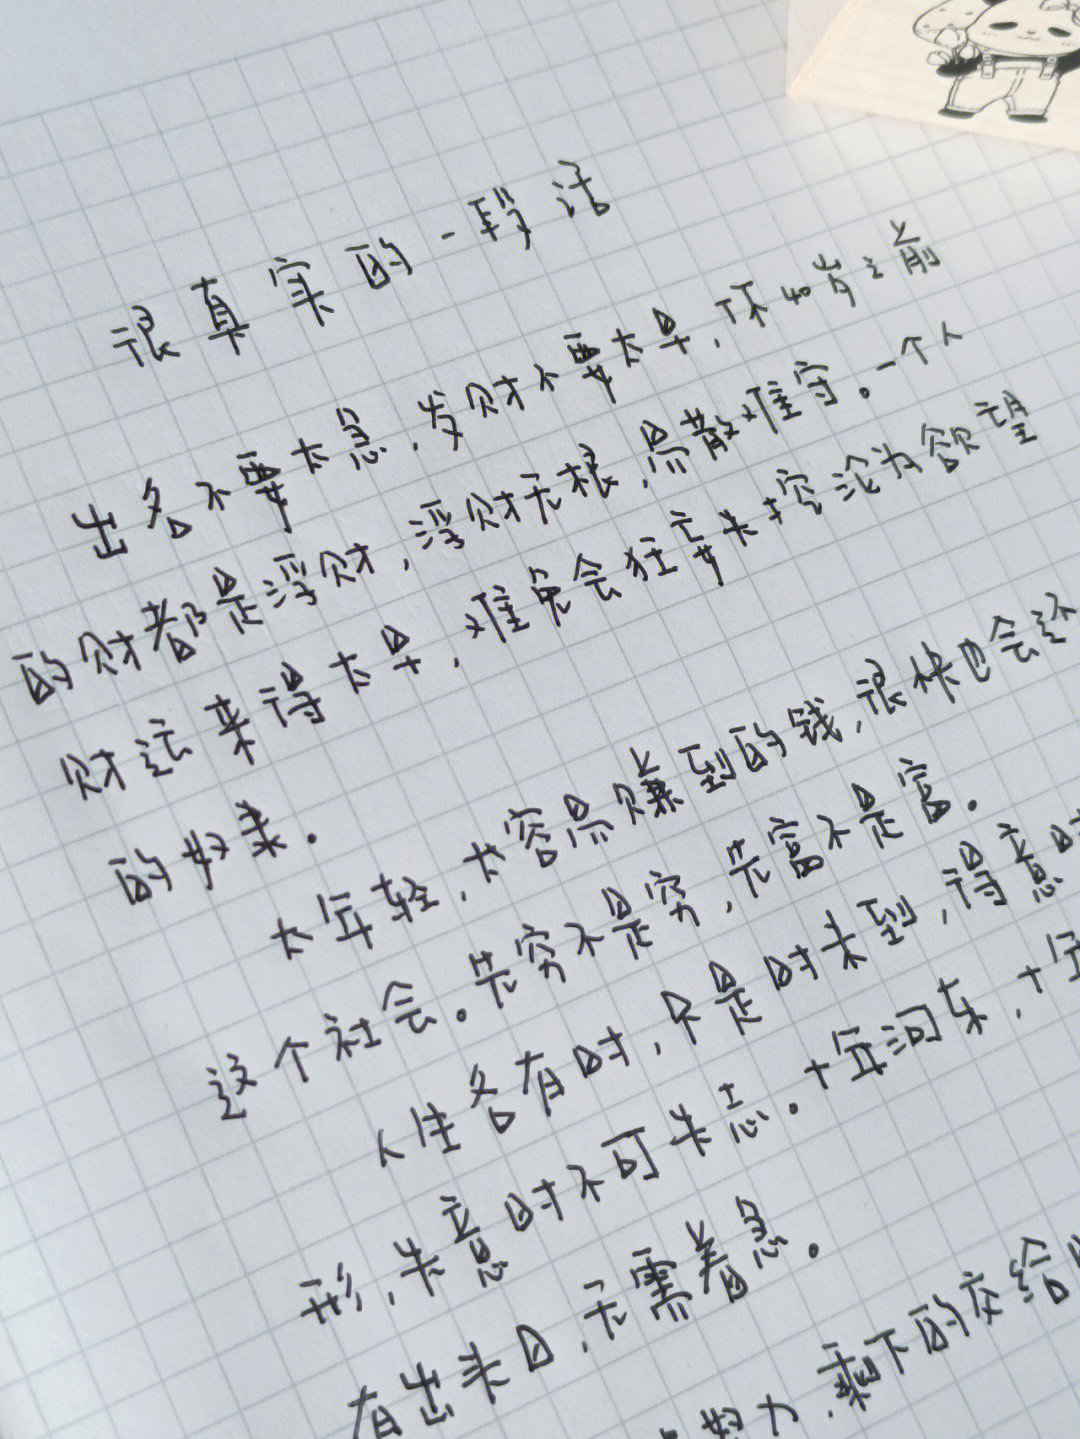 很真实的一段话
出名不要太急，发财不要太早，你40岁之前
的财都是浮财，浮财无根，易散难守。一个人
财运来得太早，难免会狂妄失控沦为欲望
的奴隶。
太年轻，太容易赚到的钱，很快也会还
这个社会。先穷不是穷，先富不是富。
人生各有时，只是时未到，得意时
形，失意时不可失志。十年河东，十年
有出头日，无需着急。
努力，剩下的交给